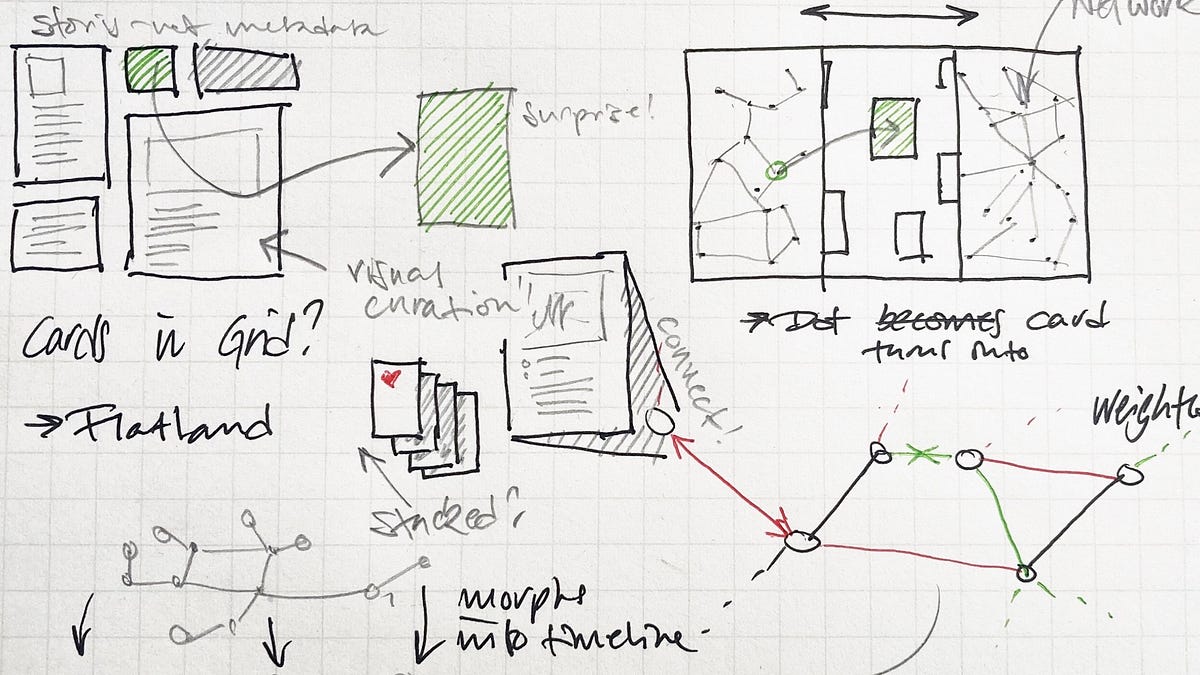 metadata
Network
Surprise!
visual
curation!
Cards in Grid?
→ Flatland
connect!
→ Dot becomes card
turns into
Stacked?
weighte
morphs
into timeline